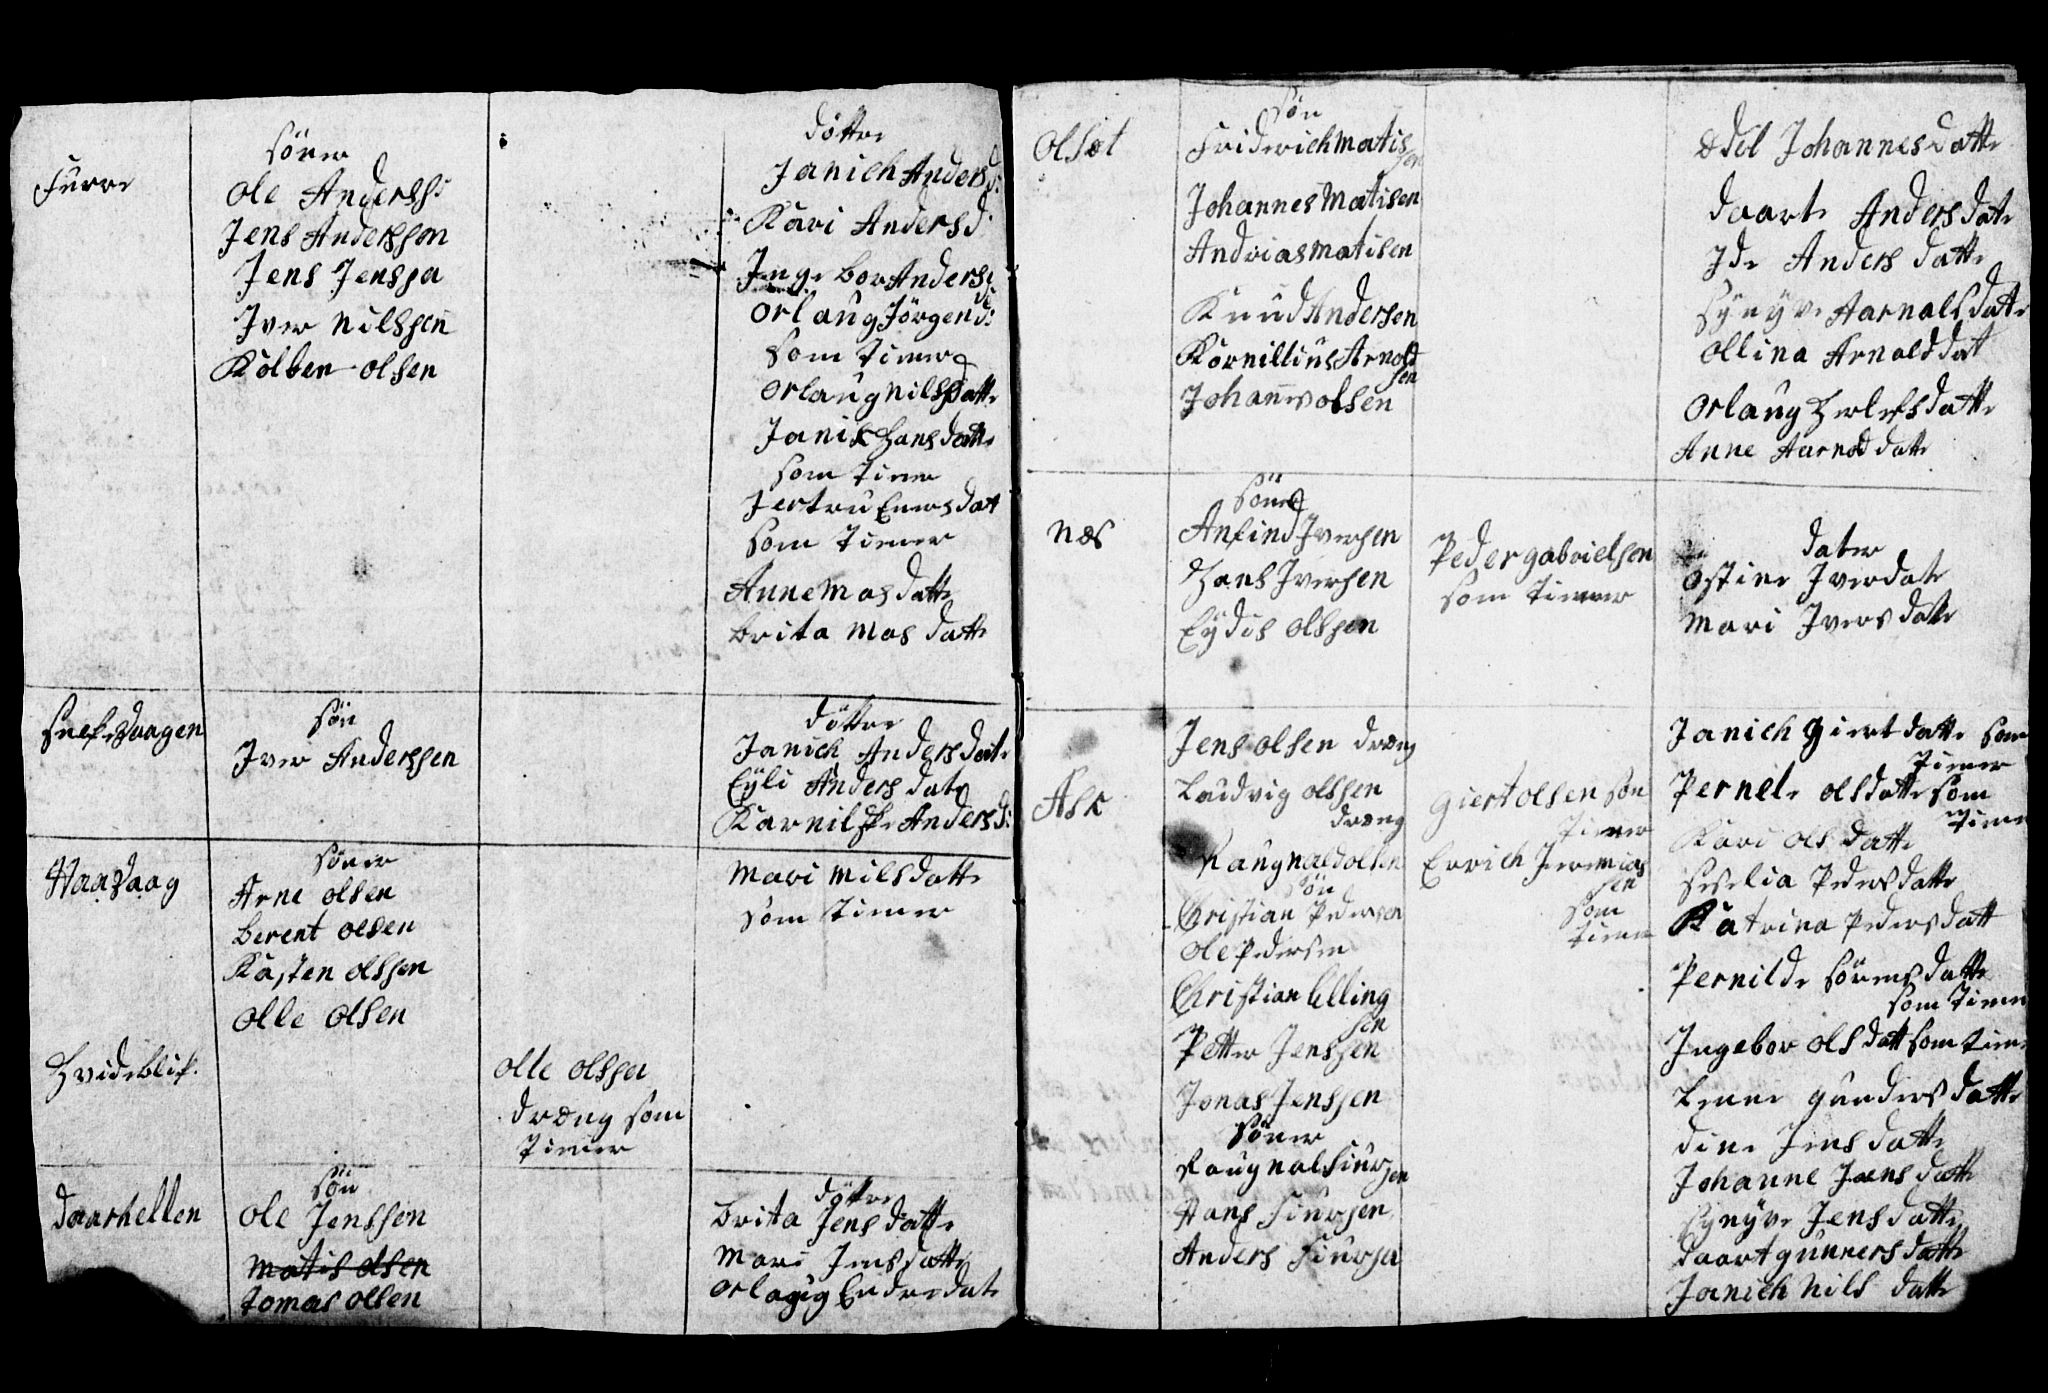 Furre
Söner
Ole Anderss:
Jens Andersson
Jens Jenssen
Iver Nilssen
Kolben Olsen
döttre
Janich Andersd:
Kari Andersd:
Ingebor Andersd:
Orlaug Jörgend:
som Tiener
Orlaug Nilsdatte
Janik Hansdatte
som Tiener
Jertru Enersdat
som Tiener
Anne Masdatte
Brita Masdatte
Sön
Iver Anderssen
döttre
Janich Andersdate
Eÿli Andersdate
Andersd:
Haadaag
Söner
Arne Olsen
Berent Olsen
Kasten Olssen
Olle Olsen
Mari Milsdatte
som Tiener
Hvideblik.
Olle Olssen
dræng som
Tiener
Daarhellen
Sön
Ole Jenssen
Matis Olsen
Tomas Olsen
döttre
Brita Jensdatte
Mari Jensdatte
Orlaug Endredate
Olset
Sön
Friderich Matissen
Johannes Matisen
Andrias Matisen
Knud Andersen
Kornillius Arnoldsen
Johannes Olsen
Edel Johannesdatte
Daarte Andersdate
Ide Andersdatte
Synÿve Aarnalsdate
Ollina Arnolddat
Orlaug datte
Anne Aarnoldatte
Næs
Söner
Anfind Iversen
Hans Iversen
Eÿdis Olssen
Peder Gabrielsen
som Tiener
dater
Ostine Iverdate
Mari Iversdatte
Ask
Jens Olsen dræng
Laudvig Olssen
dræng
Raugnald Olsen
Sön
Christian Pedersen
Ole Pedersen
Christian Ellingsen
Petter Jenssen
Jonas Jenssen
Söner
Raugnal Siursen
Hans Siursen
Anders Siursen
Giert Olsen som
Tiener
Errich Jeremiassen
som
Tiener
Janich Giertdatte som
Tiener
Pernele Olsdatte som
Tiener
Kari Olsdatte
Seselia Pedersdatte
Katrina Pedersdatt
Pernilde Sörensdatte
som Tiener
Ingebor Olsdatt som Tiener
Lene Gundersdatte
Dine Jensdatte
Johanne Jaensdatte
Synÿve Jensdatte
Daart Gunnersdatte
Janich Nilsdatte